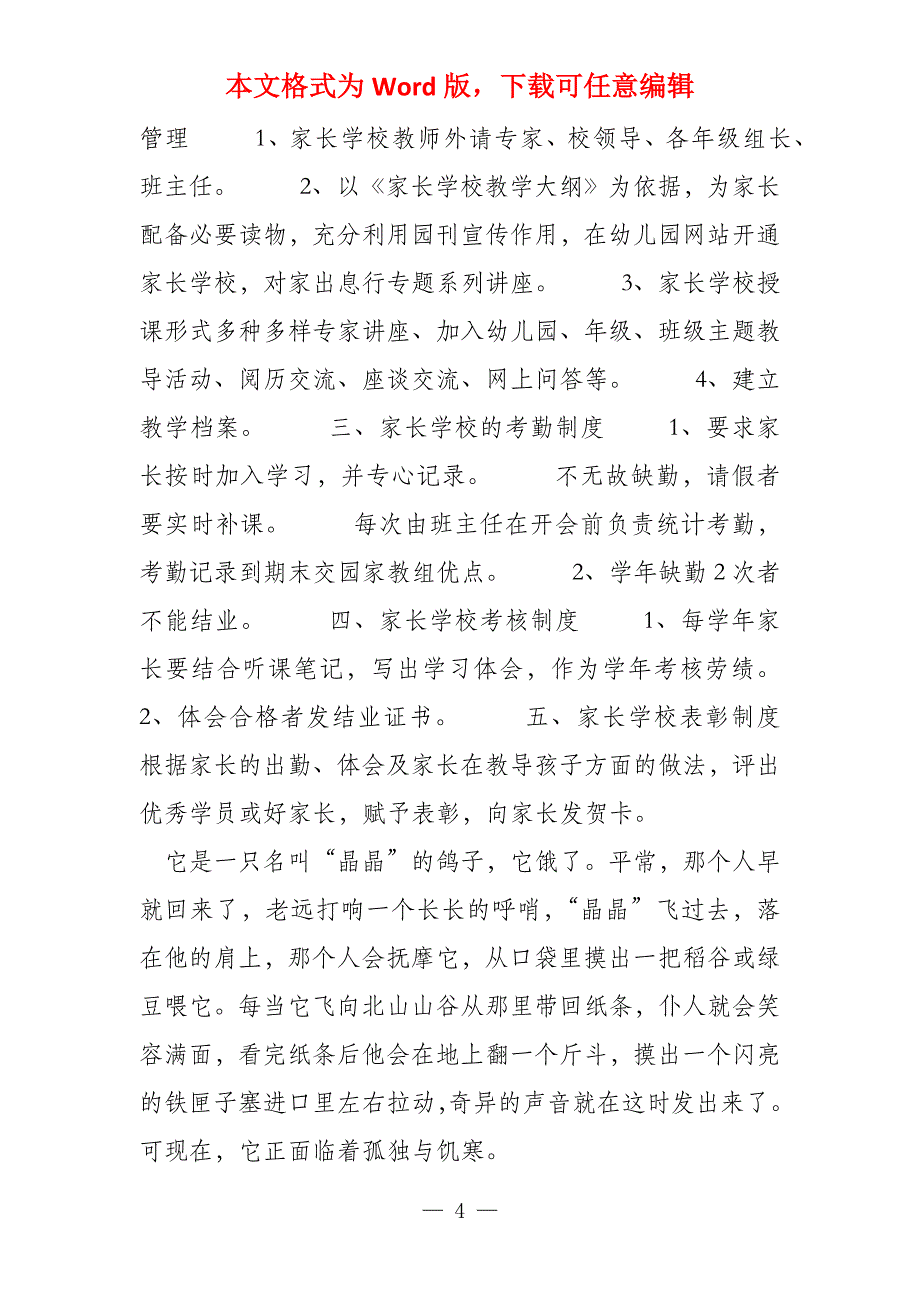 本文格式为 Word 版，下载可任意编辑
管理 1、家长学校教师外请专家、校领导、各年级组长、
班主任。 2、以《家长学校教学大纲》为依据，为家长
配备必要读物，充分利用园刊宣传作用，在幼儿园网站开通
家长学校，对家出息行专题系列讲座。 3、家长学校授
课形式多种多样专家讲座、加入幼儿园、年级、班级主题教
导活动、阅历交流、座谈交流、网上问答等。 4、建立
教学档案。 三、家长学校的考勤制度 1、要求家
长按时加入学习，并专心记录。 不无故缺勤，请假者
要实时补课。 每次由班主任在开会前负责统计考勤，
考勤记录到期末交园家教组优点。 2、学年缺勤 2 次者
不能结业。 四、家长学校考核制度 1、每学年家
长要结合听课笔记，写出学习体会，作为学年考核劳绩。
2、体会合格者发结业证书。 五、家长学校表彰制度
根据家长的出勤、体会及家长在教导孩子方面的做法，评出
优秀学员或好家长，赋予表彰，向家长发贺卡。
它是一只名叫“晶晶”的鸽子，它饿了。平常，那个人早
就回来了，老远打响一个长长的呼哨，“晶晶”飞过去，落
在他的肩上，那个人会抚摩它，从口袋里摸出一把稻谷或绿
豆喂它。每当它飞向北山山谷从那里带回纸条，仆人就会笑
容满面，看完纸条后他会在地上翻一个斤斗，摸出一个闪亮
的铁匣子塞进口里左右拉动，奇异的声音就在这时发出来了。
可现在，它正面临着孤独与饥寒。
— 4 —